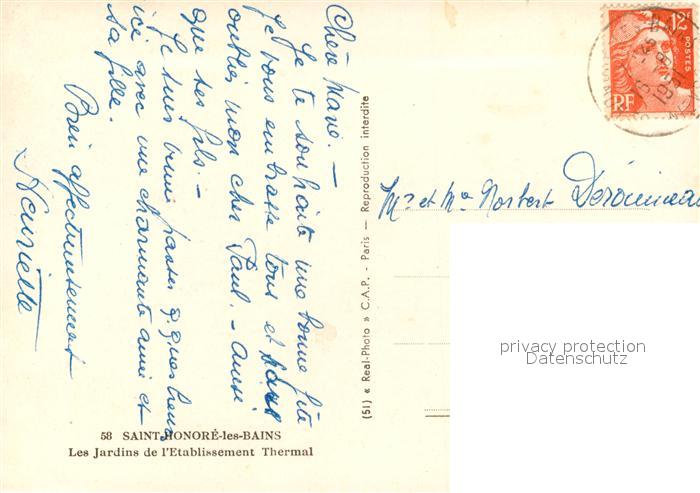 Chère Marie. —
Je te souhaite une bonne fête
je vous embrasse tous et sans
oublier mon cher Paul. — ainsi
que tes fils. —
Je suis venue passer q. ques heures
ici avec une charmante amie et
sa fille.
Bien affectueusement
Henriette
58 SAINT-HONORÉ-les-BAINS
Les Jardins de l'Etablissement Thermal
(51) « Real-Photo » C.A.P. - Paris — Reproduction interdite
12F
POSTES
RF
1951
Mr et Me Norbert
privacy protection
Datenschutz